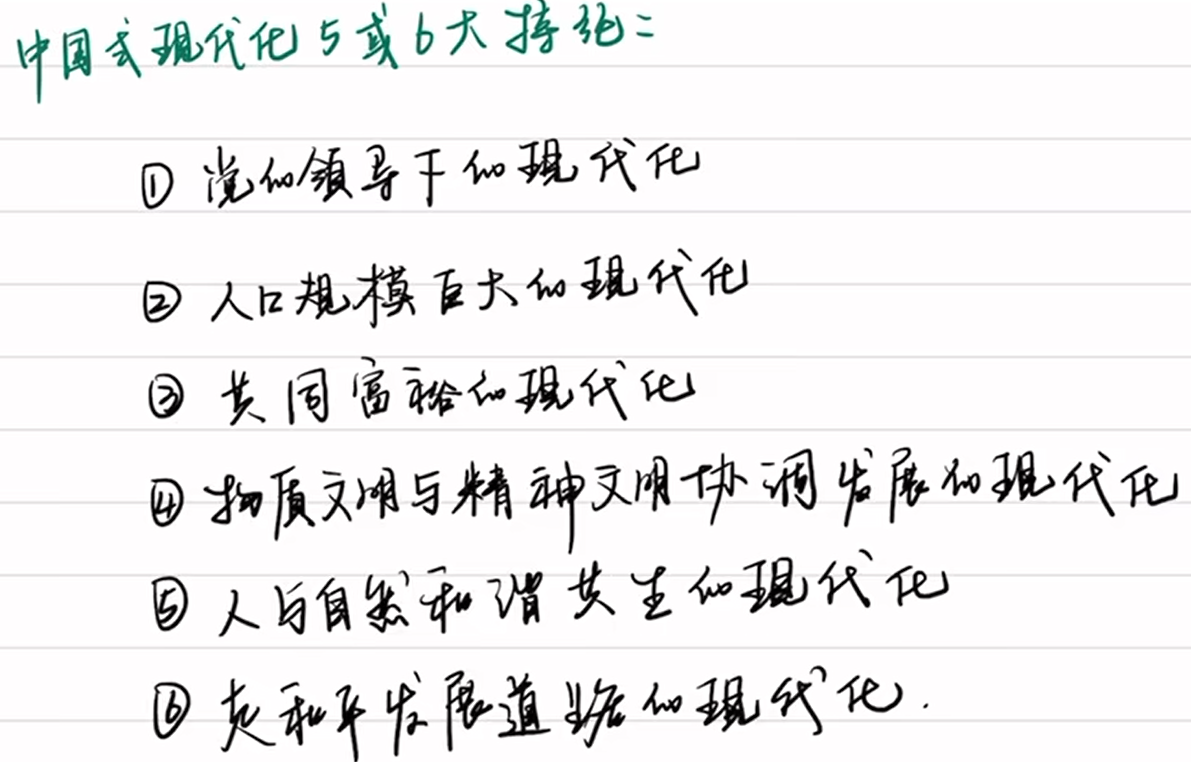 中国式现代化5或6大特征：
① 党的领导下的现代化
② 人口规模巨大的现代化
③ 共同富裕的现代化
④ 物质文明与精神文明协调发展的现代化
⑤ 人与自然和谐共生的现代化
⑥ 走和平发展道路的现代化.